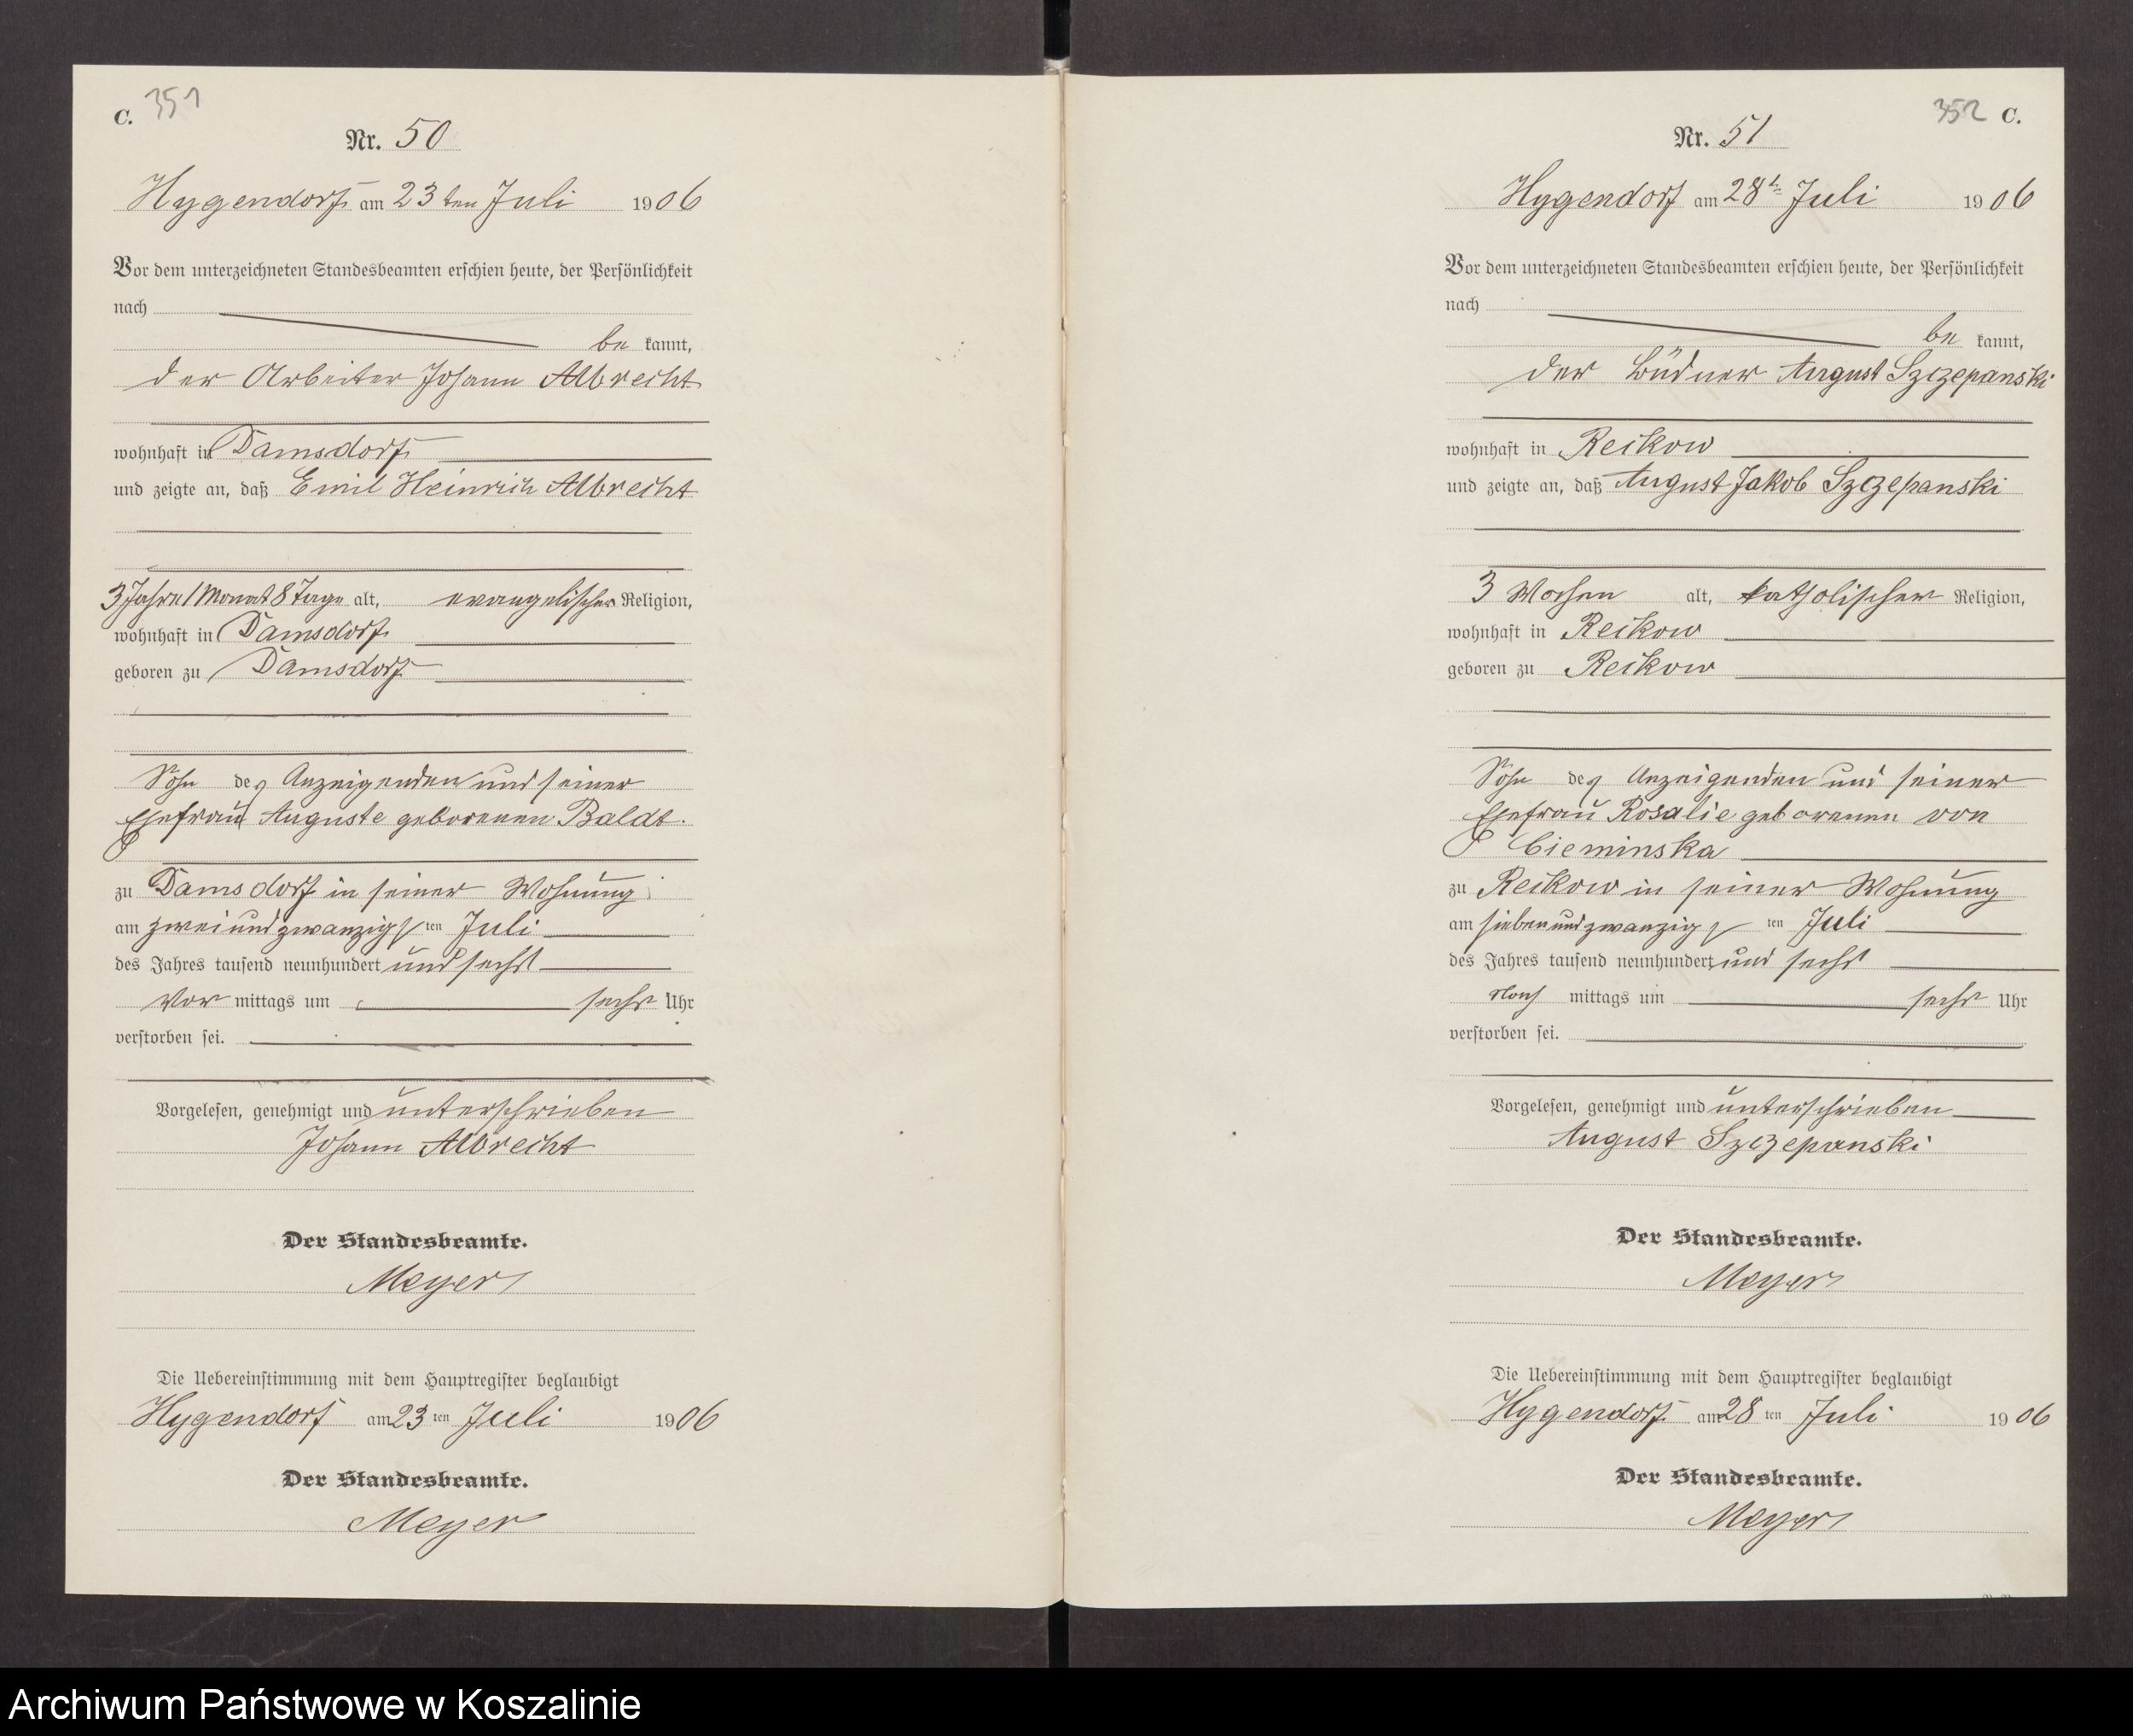 C. 351
Nr. 50
Hygendorf am 23ten Juli 1906
Vor dem unterzeichneten Standesbeamten erschien heute, der Persönlichkeit
nach
be kannt,
der Arbeiter Johann Albrecht
wohnhaft in Damsdorf
und zeigte an, daß Emil Heinrich Albrecht
3 Jahre 1 Monat 8 Tage alt, evangelischer Religion,
wohnhaft in Damsdorf
geboren zu Damsdorf
Sohn des Anzeigenden und seiner
Ehefrau Auguste geborenen Baldt.
zu Damsdorf in seiner Wohnung
am zweiundzwanzigsten Juli
des Jahres tausend neunhundert und sechs
Vor mittags um sechs Uhr
verstorben sei.
Vorgelesen, genehmigt und unterschrieben
Johann Albrecht
Der Standesbeamte.
Meyer
Die Uebereinstimmung mit dem Hauptregister beglaubigt
Hygendorf am 23ten Juli 1906
Der Standesbeamte.
Meyer
352 C.
Nr. 51
Hygendorf am 28t. Juli 1906
Vor dem unterzeichneten Standesbeamten erschien heute, der Persönlichkeit
nach
be kannt,
der Büdner August Szczepanski
wohnhaft in Reikow
und zeigte an, daß August Jakob Szczepanski
3 Wochen alt, katholischer Religion,
wohnhaft in Reikow
geboren zu Reikow
Sohn des Anzeigenden und seiner
Ehefrau Rosalie geborenen von
Cieminska
zu Reikow in seiner Wohnung
am siebenundzwanzigsten Juli
des Jahres tausend neunhundert und sechs
Nach mittags um sechs Uhr
verstorben sei.
Vorgelesen, genehmigt und unterschrieben
August Szczepanski
Der Standesbeamte.
Meyer
Die Uebereinstimmung mit dem Hauptregister beglaubigt
Hygendorf am 28ten Juli 1906
Der Standesbeamte.
Meyer
Archiwum Państwowe w Koszalinie